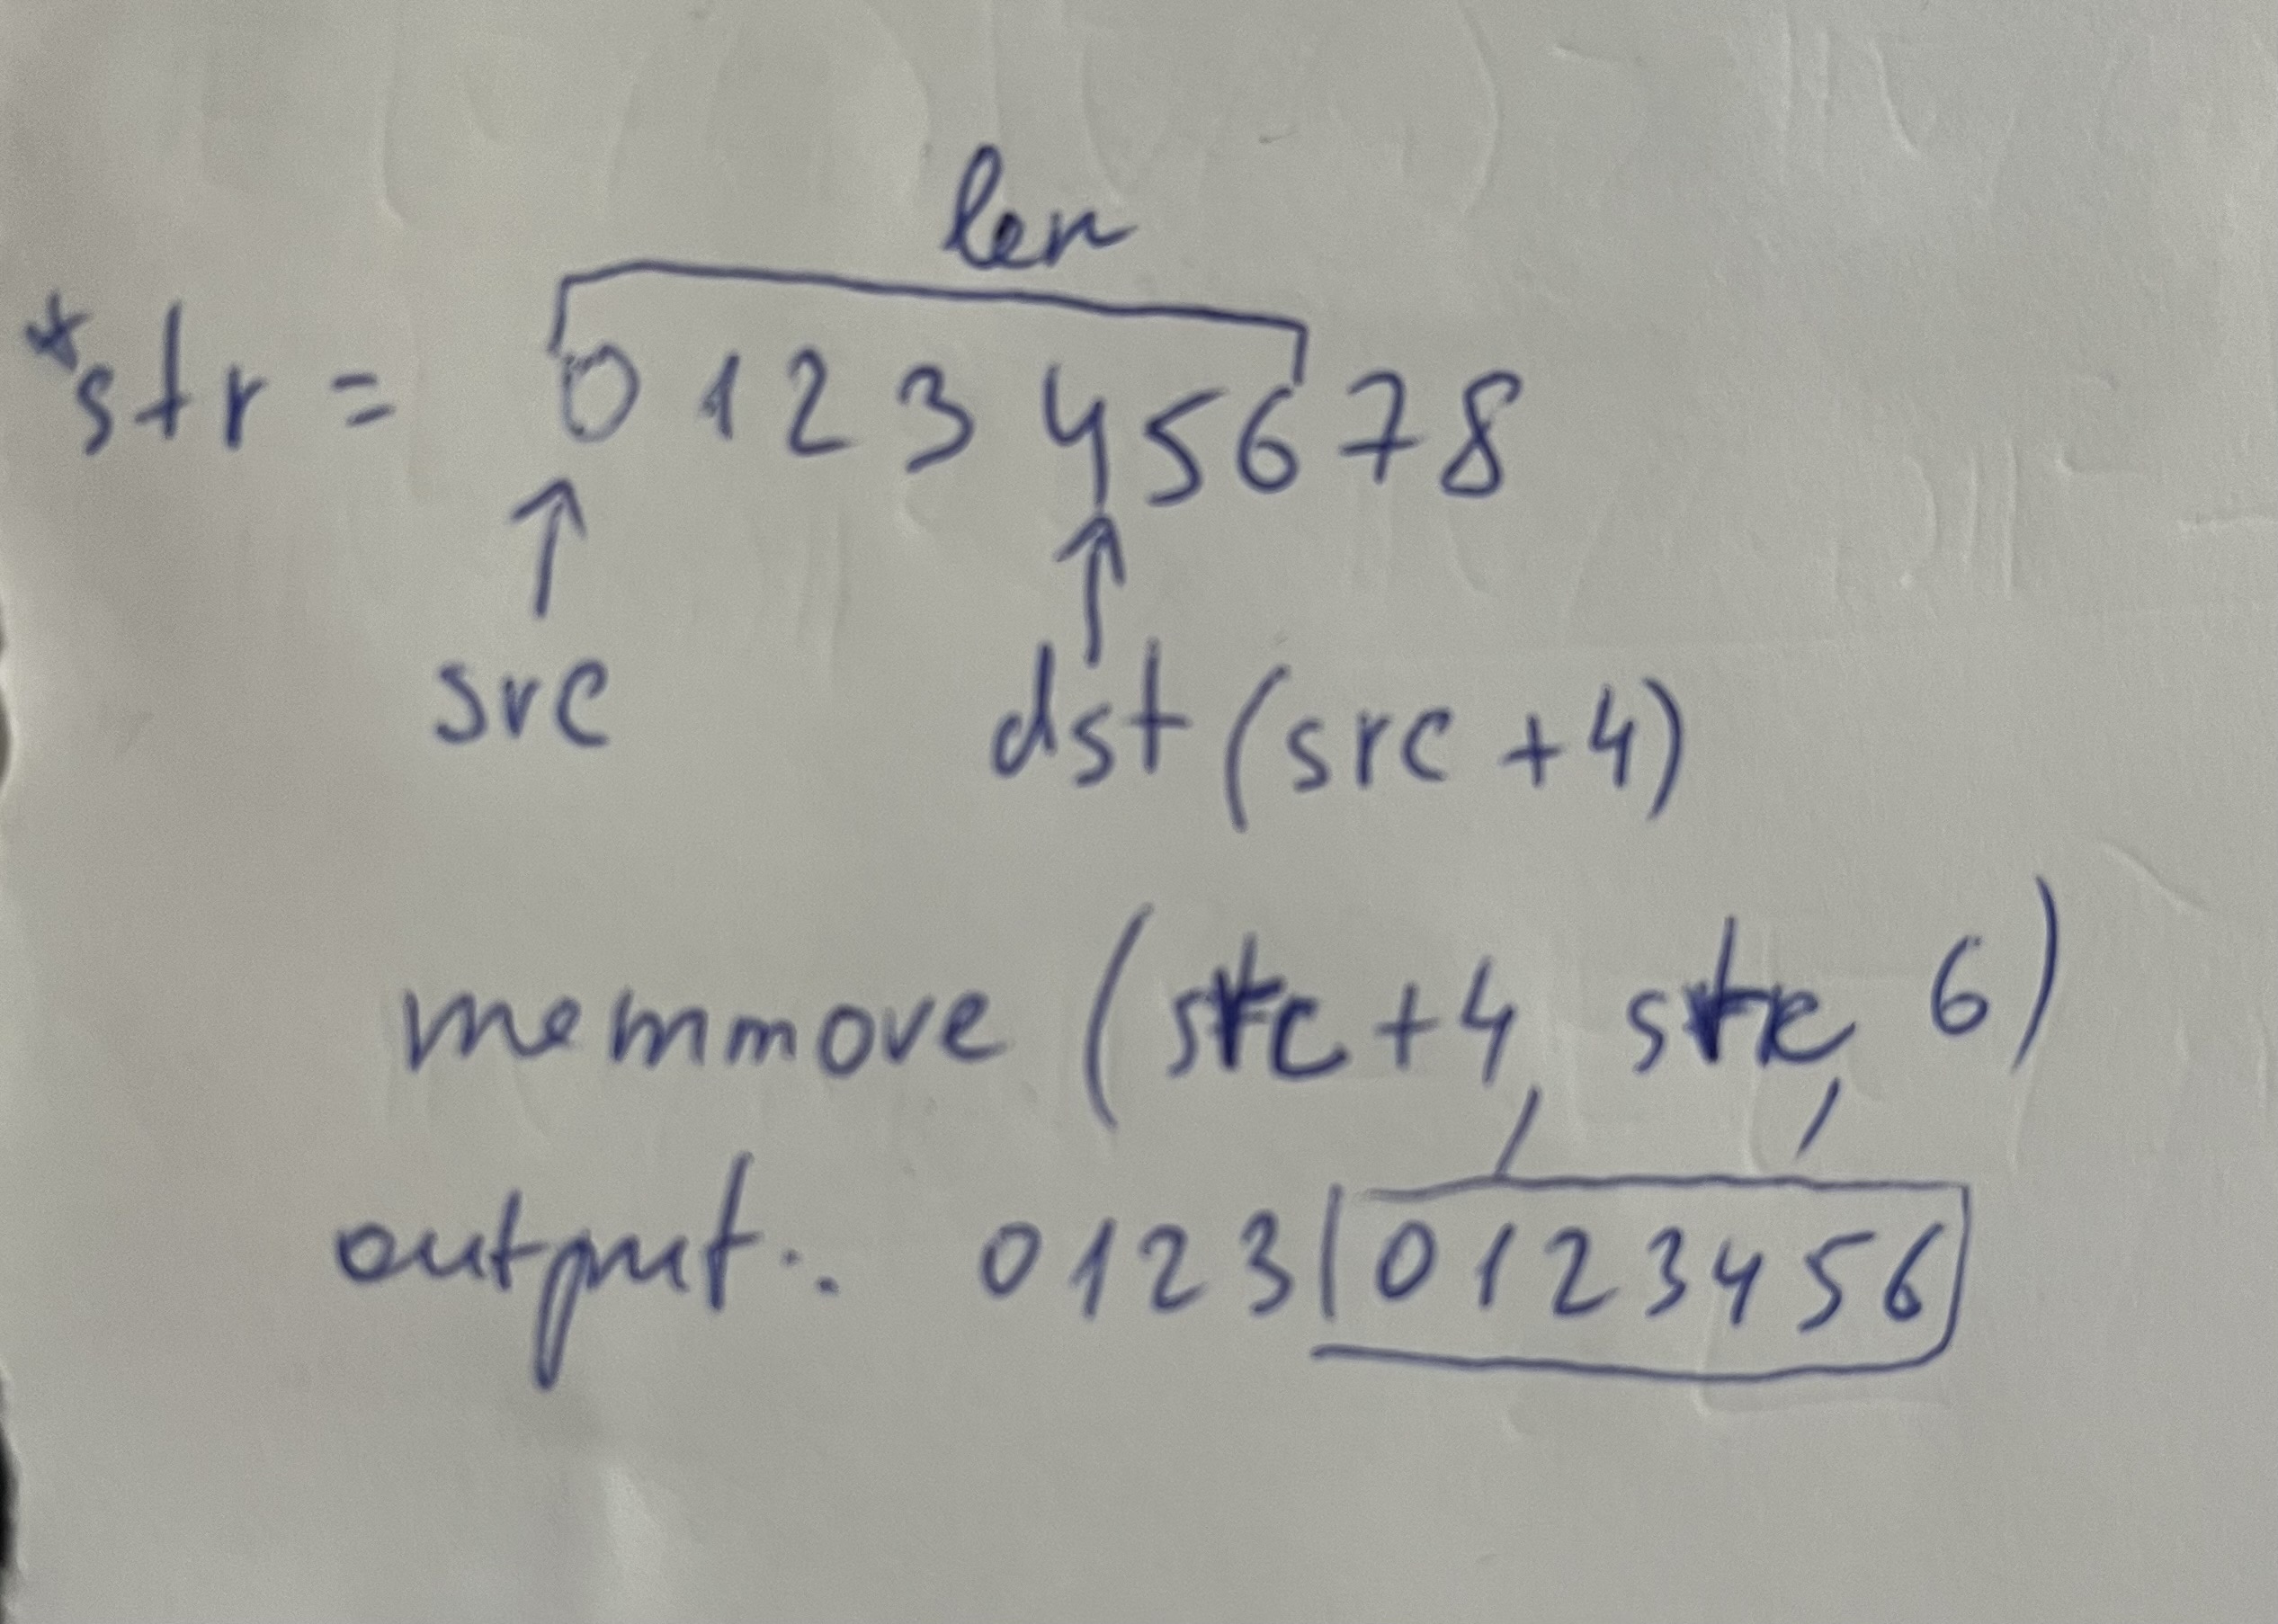 len
*str = 0 1 2 3 4 5 6 7 8
src dst (src + 4)
memmove (src + 4, src, 6)
output: 0 1 2 3 | 0 1 2 3 4 5 6